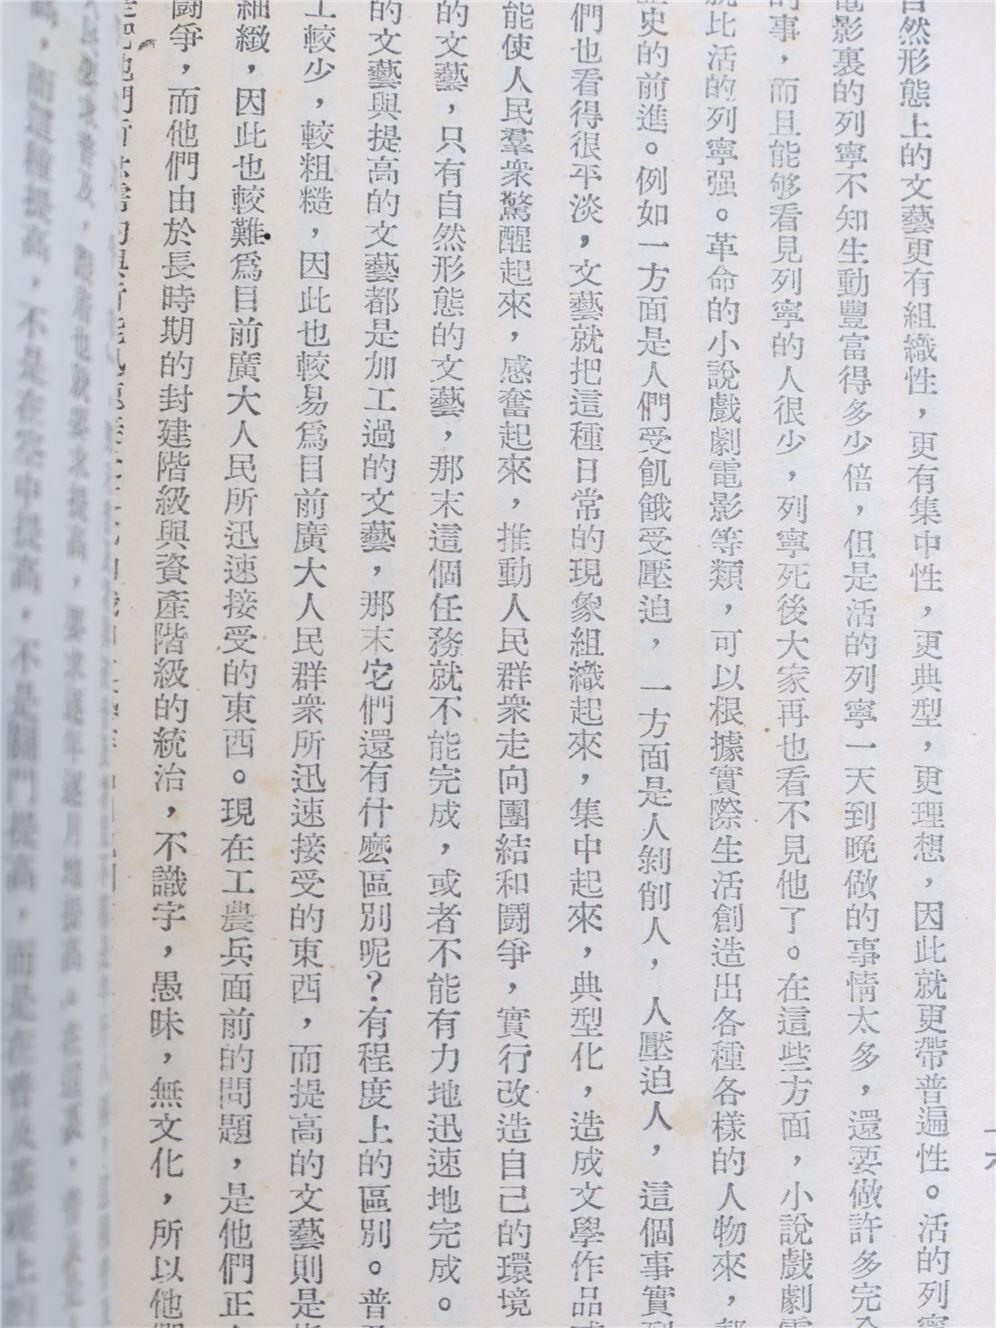 自然形態上的文藝更有組織性，更有集中性，更典型，更理想，因此就更帶普遍性。活的列寧
電影裏的列寧不知生動豐富得多少倍，但是活的列寧一天到晚做的事情太多，還要做許多完全
的事，而且能够看見列寧的人很少，列寧死後大家再也看不見他了。在這些方面，小說戲劇電
就比活的列寧强。革命的小說戲劇電影等類，可以根據實際生活創造出各種各樣的人物來，都
歷史的前進。例如一方面是人們受飢餓受壓迫，一方面是人剝削人，人壓迫人，這個事實到
們也看得很平淡，文藝就把這種日常的現象組織起來，集中起來，典型化，造成文學作品或
能使人民羣衆驚醒起來，感奮起來，推動人民群衆走向團結和鬪爭，實行改造自己的環境
的文藝，只有自然形態的文藝，那末這個任務就不能完成，或者不能有力地迅速地完成。
的文藝與提高的文藝都是加工過的文藝，那末它們還有什麽區別呢？有程度上的區別。普及
工較少，較粗糙，因此也較易爲目前廣大人民群衆所迅速接受的東西，而提高的文藝則是
細緻，因此也較難爲目前廣大人民所迅速接受的東西。現在工農兵面前的問題，是他們正
鬪爭，而他們由於長時期的封建階級與資產階級的統治，不識字，愚昧，無文化，所以他們
人民要求普及，跟着也就要求提高，要求逐年逐月地提高。在這裏，
高，而這種提高，不是在空中提高，不是關門提高，而是在普及基礎上的